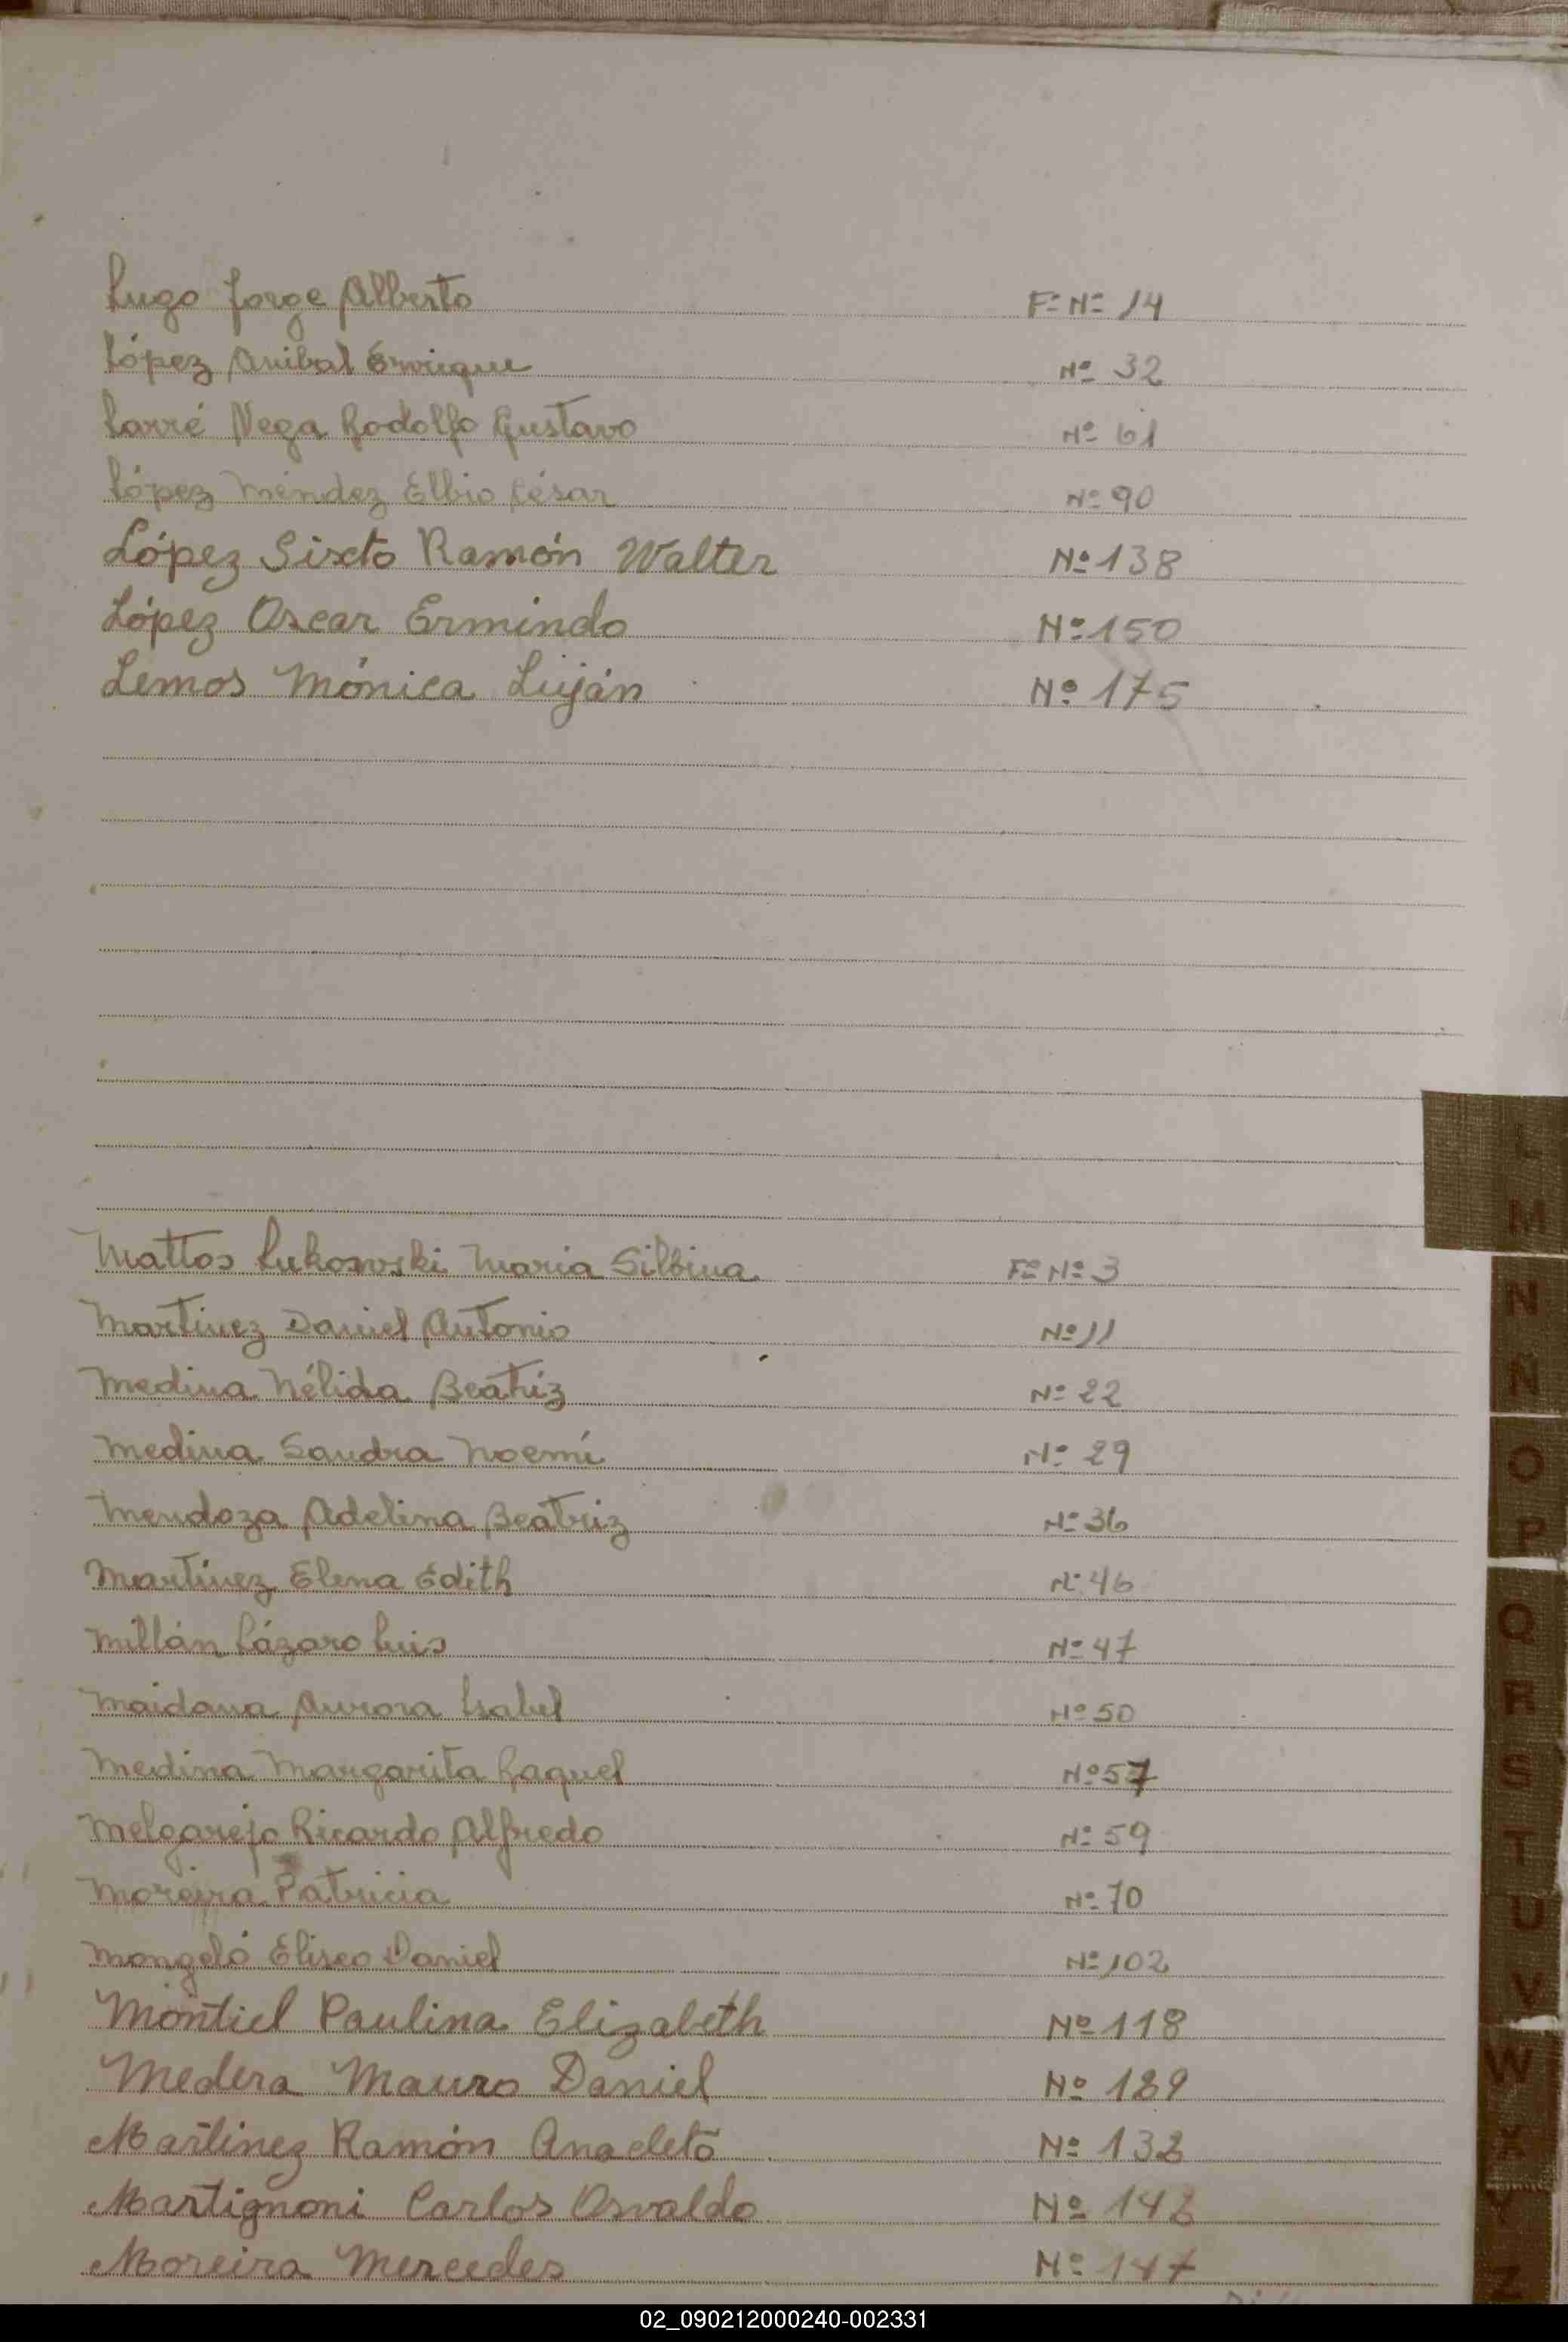 Lugo Jorge Alberto Fº Nº 14
López Anibal Enrique Nº 32
Larré Vega Rodolfo Gustavo Nº 61
López Méndez Elbio César Nº 90
López Sixto Ramón Walter Nº 138
López Oscar Ermindo Nº 150
Lemos Mónica Luján Nº 175
Mattos Lukosowski Maria Silbina Fº Nº 3
Martinez Daniel Antonio Nº 11
Medina Nélida Beatriz Nº 22
Medina Sandra Noemí Nº 29
Mendoza Adelina Beatriz Nº 36
Martínez Elena Edith Nº 46
Millán Lázaro Luis Nº 47
Maidana Aurora Isabel Nº 50
Medina Margarita Raquel Nº 57
Melgarejo Ricardo Alfredo Nº 59
Moreira Patricia Nº 70
Mongeló Eliseo Daniel Nº 102
Montiel Paulina Elizabeth Nº 118
Medera Mauro Daniel Nº 129
Martinez Ramón Anacleto Nº 132
Martignoni Carlos Osvaldo Nº 142
Moreira Mercedes Nº 147
L
M
N
Ñ
O
P
Q
R
S
T
U
V
W
X
Y
Z
02_090212000240-002331